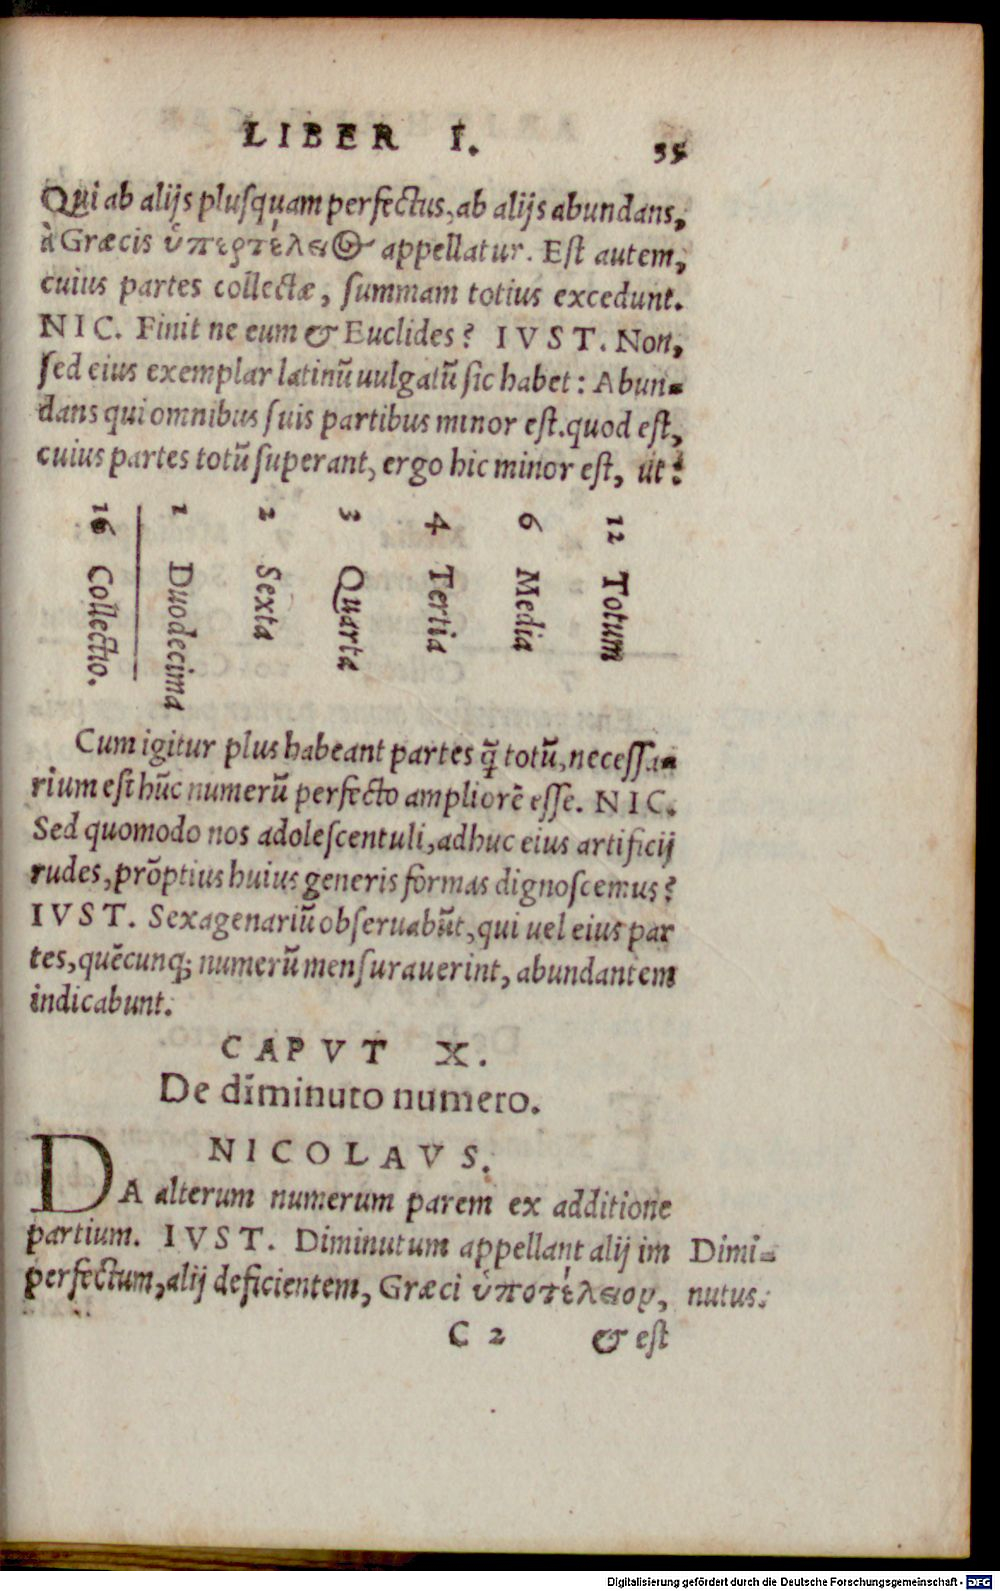 LIBER I. 35
Qui ab alijs pluſquam perfectus, ab alijs abundans,
à Græcis ὑπερτέλειος appellatur. Eſt autem,
cuius partes collectæ, ſummam totius excedunt.
NIC. Finit ne eum & Euclides? IVST. Non,
ſed eius exemplar latinũ uulgatũ ſic habet: Abun-
dans qui omnibus ſuis partibus minor eſt. quod eſt,
cuius partes totũ ſuperant, ergo hic minor eſt, ut:
12 Totum
6 Media
4 Tertia
3 Quarta
2 Sexta
1 Duodecima
16 Collectio.
Cum igitur plus habeant partes q̃ totũ, neceſſa-
rium eſt hũc numerũ perfecto ampliorẽ eſſe. NIC.
Sed quomodo nos adoleſcentuli, adhuc eius artificij
rudes, prõptius huius generis formas dignoſcemus?
IVST. Sexagenariũ obſeruabũt, qui uel eius par
tes, quẽcunq; numerũ menſurauerint, abundantem
indicabunt.
CAPVT X.
De diminuto numero.
NICOLAVS.
DA alterum numerum parem ex additione
partium. IVST. Diminutum appellant alij im
perfectum, alij deficientem, Græci ὑποτέλειον,
Dimi-
nutus.
C 2 & eſt
Digitalisierung gefördert durch die Deutsche Forschungsgemeinschaft - DFG